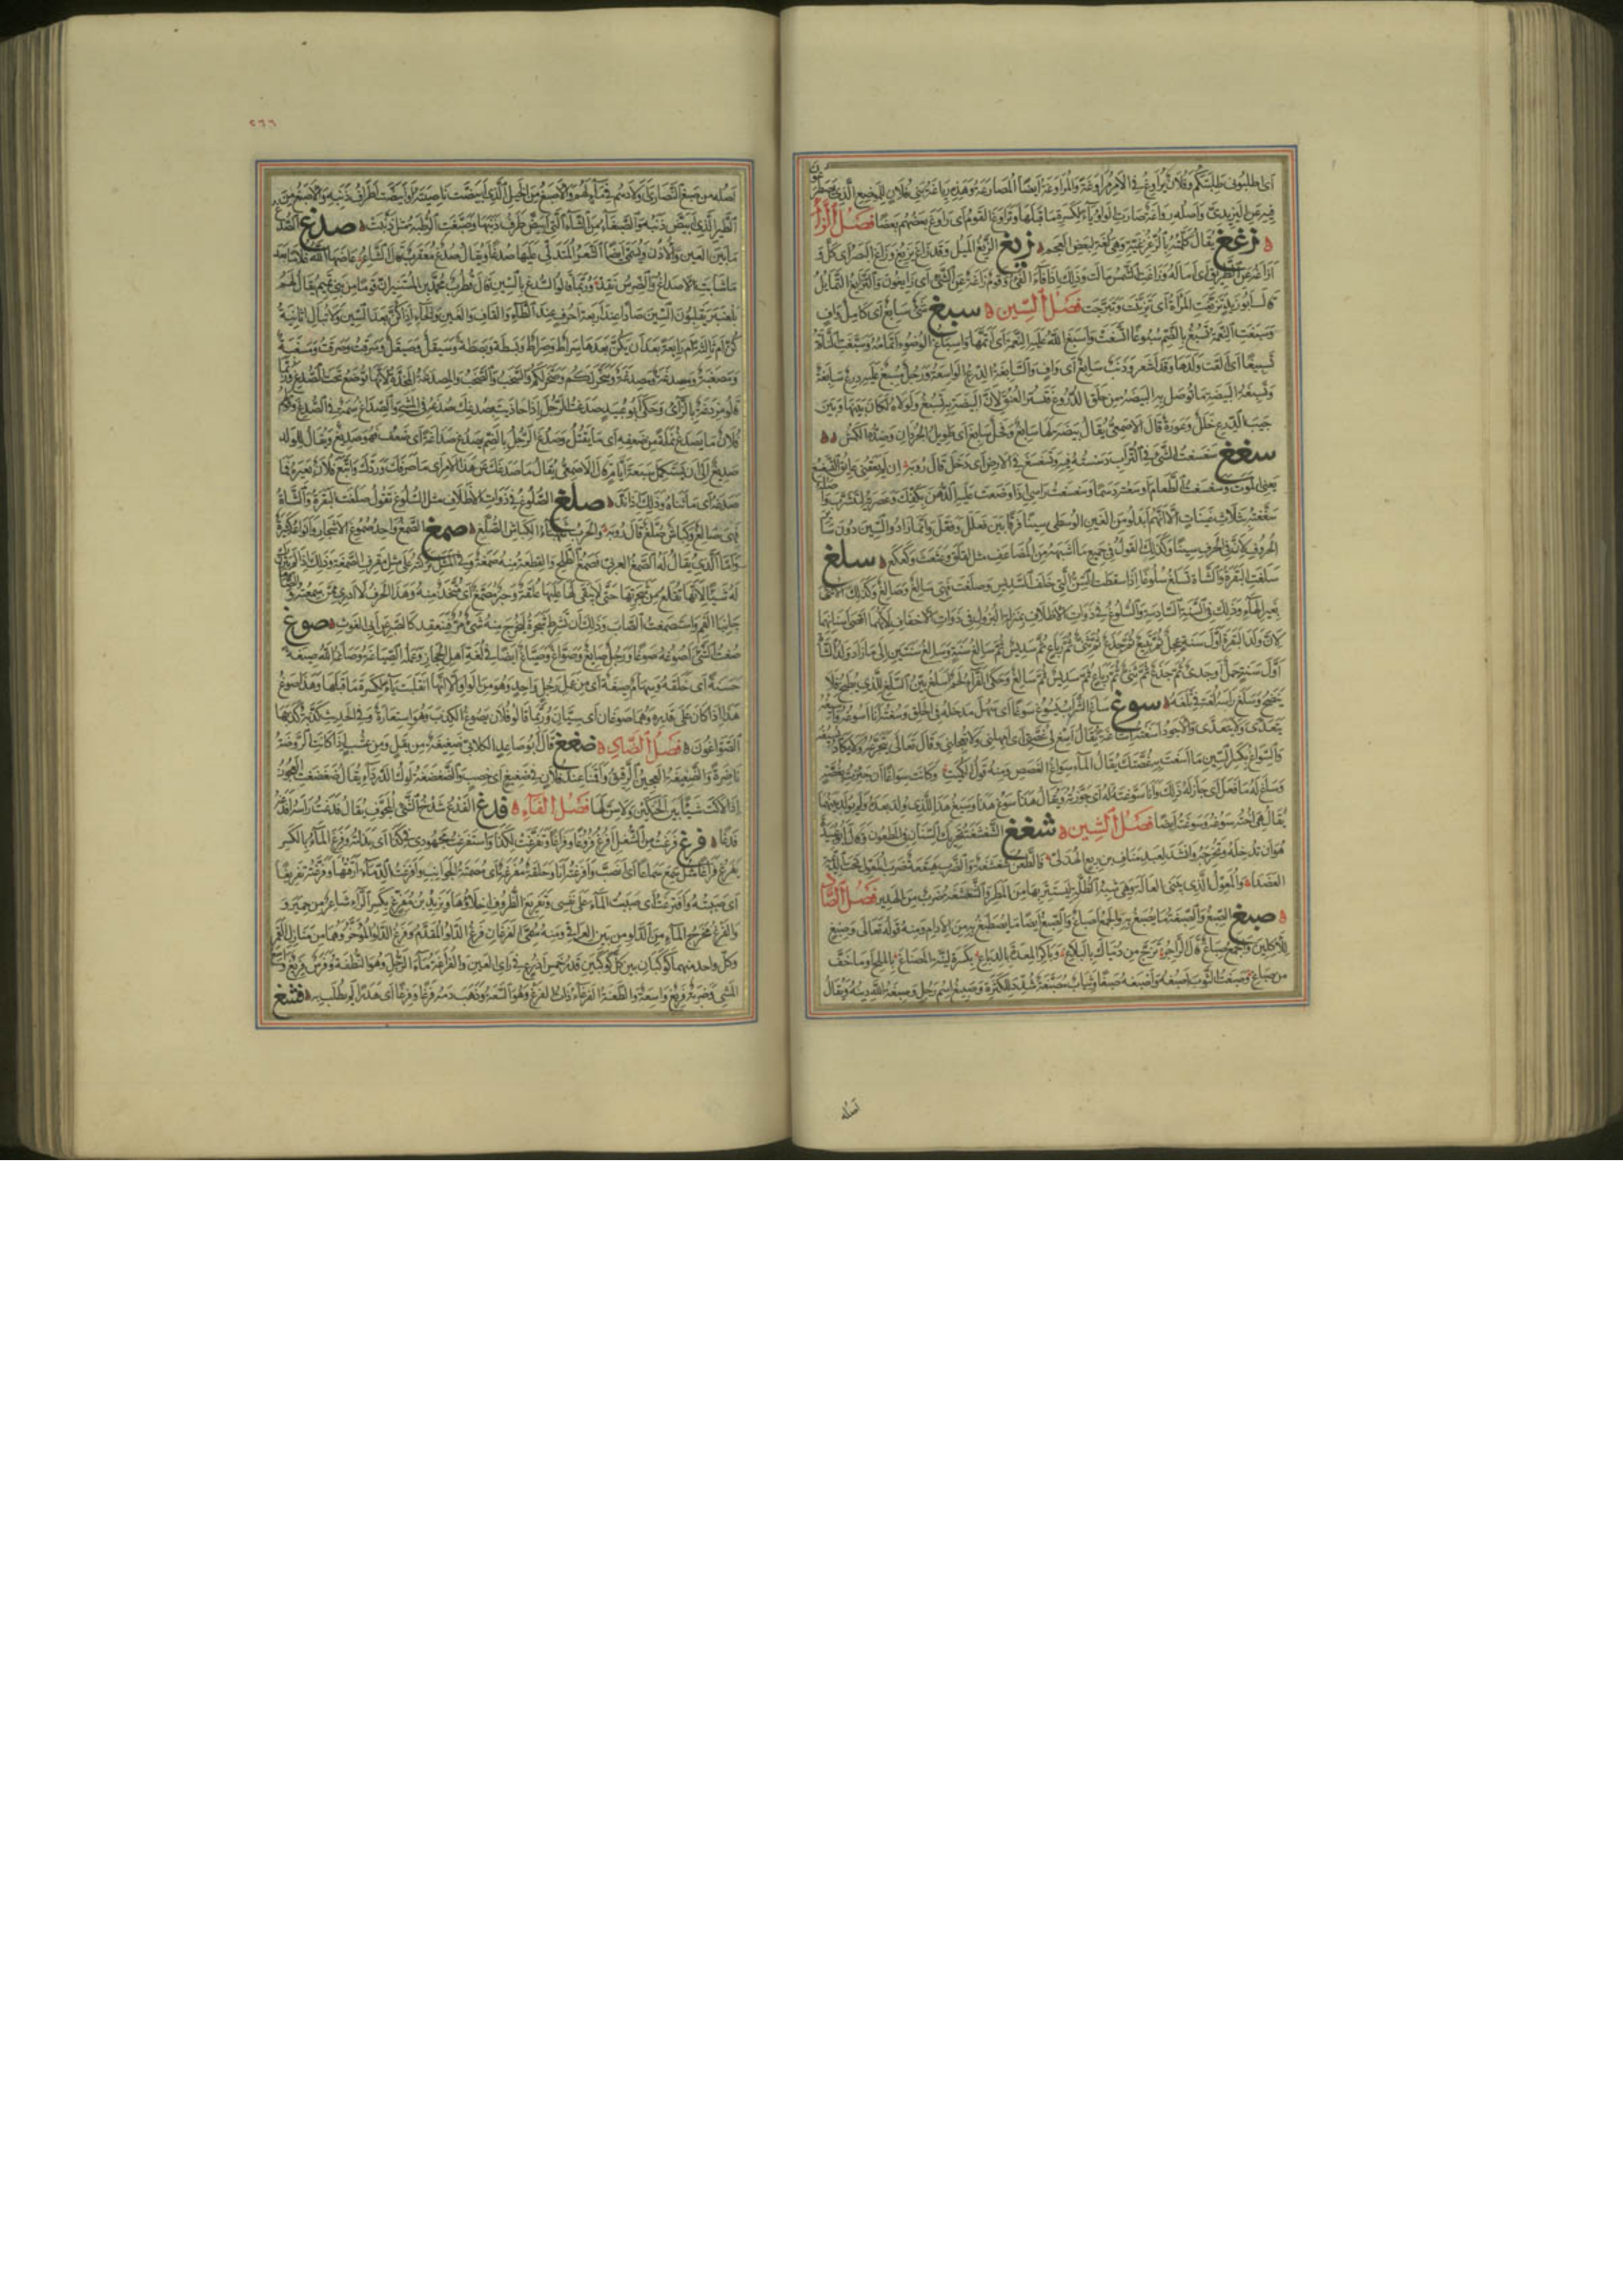 اى طلبوف طلبتكم وفلان يراوغ فى الامر مراوغة والمراوغة ايضا المصارعة وهذه رياغة بنى فلان للموضع الذى يصطرعون
فيه عن اليزيدى واصله رواغة صارت الواو ياء لكسرة ما قبلها وتراوغ القوم اى راوغ بعضهم بعضا فصل الزاء
زغغ يقال كلمته بالزغزغية وهى لغة لبعض العجم زيغ الزيغ الميل وقد زاغ يزيغ وزاغ البصر اى كل و
ازاغه عن الطريق اى اماله وزاغت الشمس مالت وذلك اذا فاء الفئ وقوم زاغة عن الشئ اى زايغون والتزايغ التمايل
قال ابو زيد تزيغت المراة اى تزينت وتبرجت فصل السين سبغ شئ سابغ اى كامل واف
وسبغت النعمة تسبغ بالضم سبوغا اتسعت واسبغ الله عليه النعمة اى اتمها واسباغ الوضوء اتمامه وسبغت الناقة
تسبيغا اى القت ولدها وقد اشعر وذنب سابغ اى واف والسابغة الدرع الواسعة ورجل مسبغ عليه درع سابغة
وتسبغة البيضة ما توصل به البيضة من حلق الدروع فتستر العنق لان البيضة به تسبغ ولولاه لكان بينها وبين
جيب الدرع خلل وعورة قال الاصمعى يقال بيضة لها سابغ وفحل سابغ اى طويل الجردان وضده الكمش
سغغ سغسغت الشئ فى التراب دسسته فيه وتسغسغ فى الارض اى دخل قال روبة ان لم يعقنى عايق التسغسغ
يعنى الموت وسغسغت الطعام اوسعته دسما وسغسغت راسى اذا وضعت عليه الدهن بكفيك وعصرته ليتشرب واصله
سغغته بثلاث غينات الا انهم ابدلوا من الغين الوسطى سينا فرقا بين فعلل وفعل وانما زادوا السين دون ساير
الحروف لان فى الحرف سينا وكذلك القول فى جميع ما اشبهه من المضاعف مثل لقلق وعثعث وكعكع سلغ
سلغت البقرة والشاة تسلغ سلوغا اذا اسقطت السن التى خلف السديس وصلغت فهى سالغ وصالغ وكذلك الانثى
بغير الهاء وذلك فى السنة السادسة والسلوغ فى ذوات الاظلاف بمنزلة البزول فى ذوات الاخفاف لانهما اقصى اسنانهما
لان ولد البقرة اول سنة عجل ثم تبيع ثم جذع ثم ثنى ثم رباع ثم سديس ثم سالغ سنة وسالغ سنتين الى ما زاد وولد الشاة
اول سنة حمل او جدى ثم جذع ثم ثنى ثم رباع ثم سديس ثم سالغ وحكى الفراء لحم اسلغ بين السلغ للذى يطبخ فلا
ينضج وسلغ راسه لغة فى ثلغه سوغ ساغ الشراب يسوغ سوغا اى سهل مدخله فى الحلق وسغته انا اسوغه واسيغه
يتعدى ولا يتعدى والاجود اسغته اساغة يقال اسغ لى غصتى اى امهلنى ولا تعجلنى وقال تعالى يتجرعه ولا يكاد يسيغه
والسواغ بكسر السين ما اسغت به غصتك يقال الماء سواغ الغصص ومنه قول الكميت وكانت سواغا ان جيزت بغصة
وساغ له ما فعل اى جاز له ذلك وانا سوغته له اى جوزته ويقال هذا سوغ هذا وسيغ هذا للذى ولد بعده ولم يولد بينهما
يقال هى اخته سوغه وسوغته ايضا فصل الشين شغغ الشغشغة تحريك السنان فى المطعون وقال ابو عبيدة
هو ان تدخله وتخرجه وانشد لعبد مناف بن ربع الهذلى فالطعن شغشغة والضرب هيقعة ضرب المعول تحت الديمة
العضدا والمعول الذى يبنى العالة وهى شبه الظلة ليستتر بها من المطر والشغشغة ضرب من الهدير فصل الصاد
صبغ الصبغ والصبغة ما يصبغ به والجمع اصباغ والصبغ ايضا ما يصطبغ به من الادام ومنه قوله تعالى وصبغ
للاكلين والجمع صباغ قال الراجز تزج من دنياك بالبلاغ وباكر المعدة بالدباغ بكسرة لينة المضاغ بالملح او ما خف
من صباغ وصبغت الثوب اصبغه واصبغه صبغا وثياب مصبغة شدد للكثرة وصبيغ اسم رجل وصبغة الله دينه ويقال
اصله
٢٦٦
اصله من صبغ النصارى اولادهم فى ماء لهم والاصبغ من الخيل الذى ابيضت ناصيته او ابيضت اطراف ذنبه والاصبغ من
الطير الذى ابيض ذنبه والصبغاء من الشاء التى ابيض طرف ذنبها وصبغت الرطبة مثل ذنبت صدغ الصدغ
ما بين العين والاذن ويسمى ايضا الشعر المتدلى عليها صدغا ويقال صدغ معقرب قال الشاعر عاضها الله غلاما بعد
ما شابت الاصداغ والضرس نقد وربما قالوا السدغ بالسين قال قطرب محمد بن المستنير ان قوما من بنى تميم يقال لهم
بلعنبر يقلبون السين صادا عند اربعة احرف عند الطاء والقاف والغين والخاء اذا كن بعد السين ولا تبالى اثانية
كن ام ثالثة ام رابعة بعد ان يكن بعدها سراط وصراط وبسطة وبصطة وسيقل وصيقل وسرقت وصرقت ومسغبة
ومصغبة ومسدغة ومصدغة وسخر لكم وصخر لكم والسخب والصخب والمصدغة المخدة لانها توضع تحت الصدغ وربما
قالوا مزدغة بالزاى وحكى ابو عبيد صدغت الرجل اذا حاذيت بصدغك صدغه فى المشى والصداغ سمة فى الصدغ وقولهم
فلان ما يصدغ نملة من ضعفه اى ما يقتل وصدغ الرجل بالضم يصدغ صداغة اى ضعف فهو صديغ ويقال للولد
صديغ الى ان يستكمل سبعة ايام قال الاصمعى يقال ما صدغك عن هذا الامر اى ما صرفك وردك واتبع فلان بعيره فما
صدغه اى ما ثناه وذلك اذا ند صلغ الصلوغ فى ذوات الاظلاف مثل السلوغ تقول صلغت البقرة والشاة
فهى صالغ وكباش صلغ قال روبة والحرب شهباء الكباش الصلغ صمغ الصمغ واحد صموغ الاشجار وانواعه كثيرة
واما الذى يقال له الصمغ العربى فصمغ الطلح والقطعة منه صمغة وفى المثل تركته على مثل مقرف الصمغة وذلك اذا لم يترك
له شيئا لانها تقلع من شجرتها حتى لا يبقى لها عليها علقة وحبر مصمغ اى متخذ منه وهذا الحرف لا ادرى ممن سمعته والصامغان
جانبا الفم واستصمغت الصاب وذلك ان تشرط شجره ليخرج منه شئ مر فينعقد كالصبر عن ابى الغوث صوغ
صغت الشئ اصوغه صوغا ورجل صايغ وصواغ وصياغ ايضا فى لغة اهل الحجاز وعمله الصياغة وصاغه الله صيغة
حسنة اى خلقه وسهام صيغة اى من عمل رجل واحد وهو من الواو الا انها انقلبت ياء لكسرة ما قبلها وهذا صوغ
هذا اذا كان على قدره وهما صوغان اى سيان وربما قالوا فلان يصوغ الكذب وهو استعارة وفى الحديث كذبة كذبها
الصواغون فصل الضاد ضغغ قال ابو صاعد الكلابى ضغيغة من بقل ومن عشب اذا كانت الروضة
ناضرة والضغيغة العجين الرقيق واقمنا عند فلان فى ضغيغ اى خصب والضغضغة لوك الدرداء يقال ضغضغت العجوز
اذا لاكت شيئا بين الحنكين ولا سن لها فصل الفاء فدغ الفدغ شدخ الشئ المجوف يقال فدغت راسه افدغه
فدغا فرغ فرغت من الشغل افرغ فروغا وفراغا وتفرغت لكذا واستفرغت مجهودى فى كذا اى بذلته وفرغ الماء بالكسر
يفرغ فراغا مثل سمع سماعا اى انصب وافرغته انا وحلقة مفرغة اى مصمتة الجوانب وافرغت الدماء ارقتها وفرغته تفريغا
اى صببته وافترغت اى صببت الماء على نفسى وتفريغ الظروف اخلاؤها ويزيد بن مفرغ بكسر الراء شاعر من حمير و
والفرغ مخرج الماء من الدلو من بين العراقى ومنه سمى الفرغان فرغ الدلو المقدم وفرغ الدلو المؤخر وهما من منازل القمر
وكل واحد منهما كوكبان بين كل كوكبين قدر خمس اذرع فى راى العين والفراغة ماء الرجل وهو النطفة وفرس فريغ واسع
المشى وضربة فريغ واسعة والطعنة الفرغاء ذات الفرغ وهو السعة وذهب دمه فرغا وفرغا اى هدرا لم يطلب به فشغ